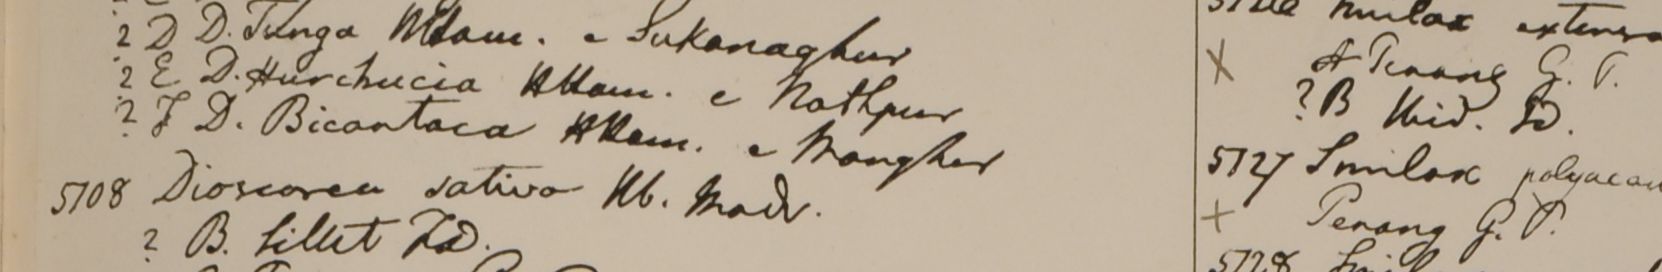 ? D D. Tunga HHam. e Sukanaghur
? E D. Hurchucia HHam. e Nathpur
? F D. Bicantaca HHam. e Mongher
5708 Dioscorea sativa Hb. Madr.
? B. Sillet FD.
Smilax extensa
X A Penang G. P.
? B Ibid.
5727 Smilax polyacan
+ Penang G. P.
5728